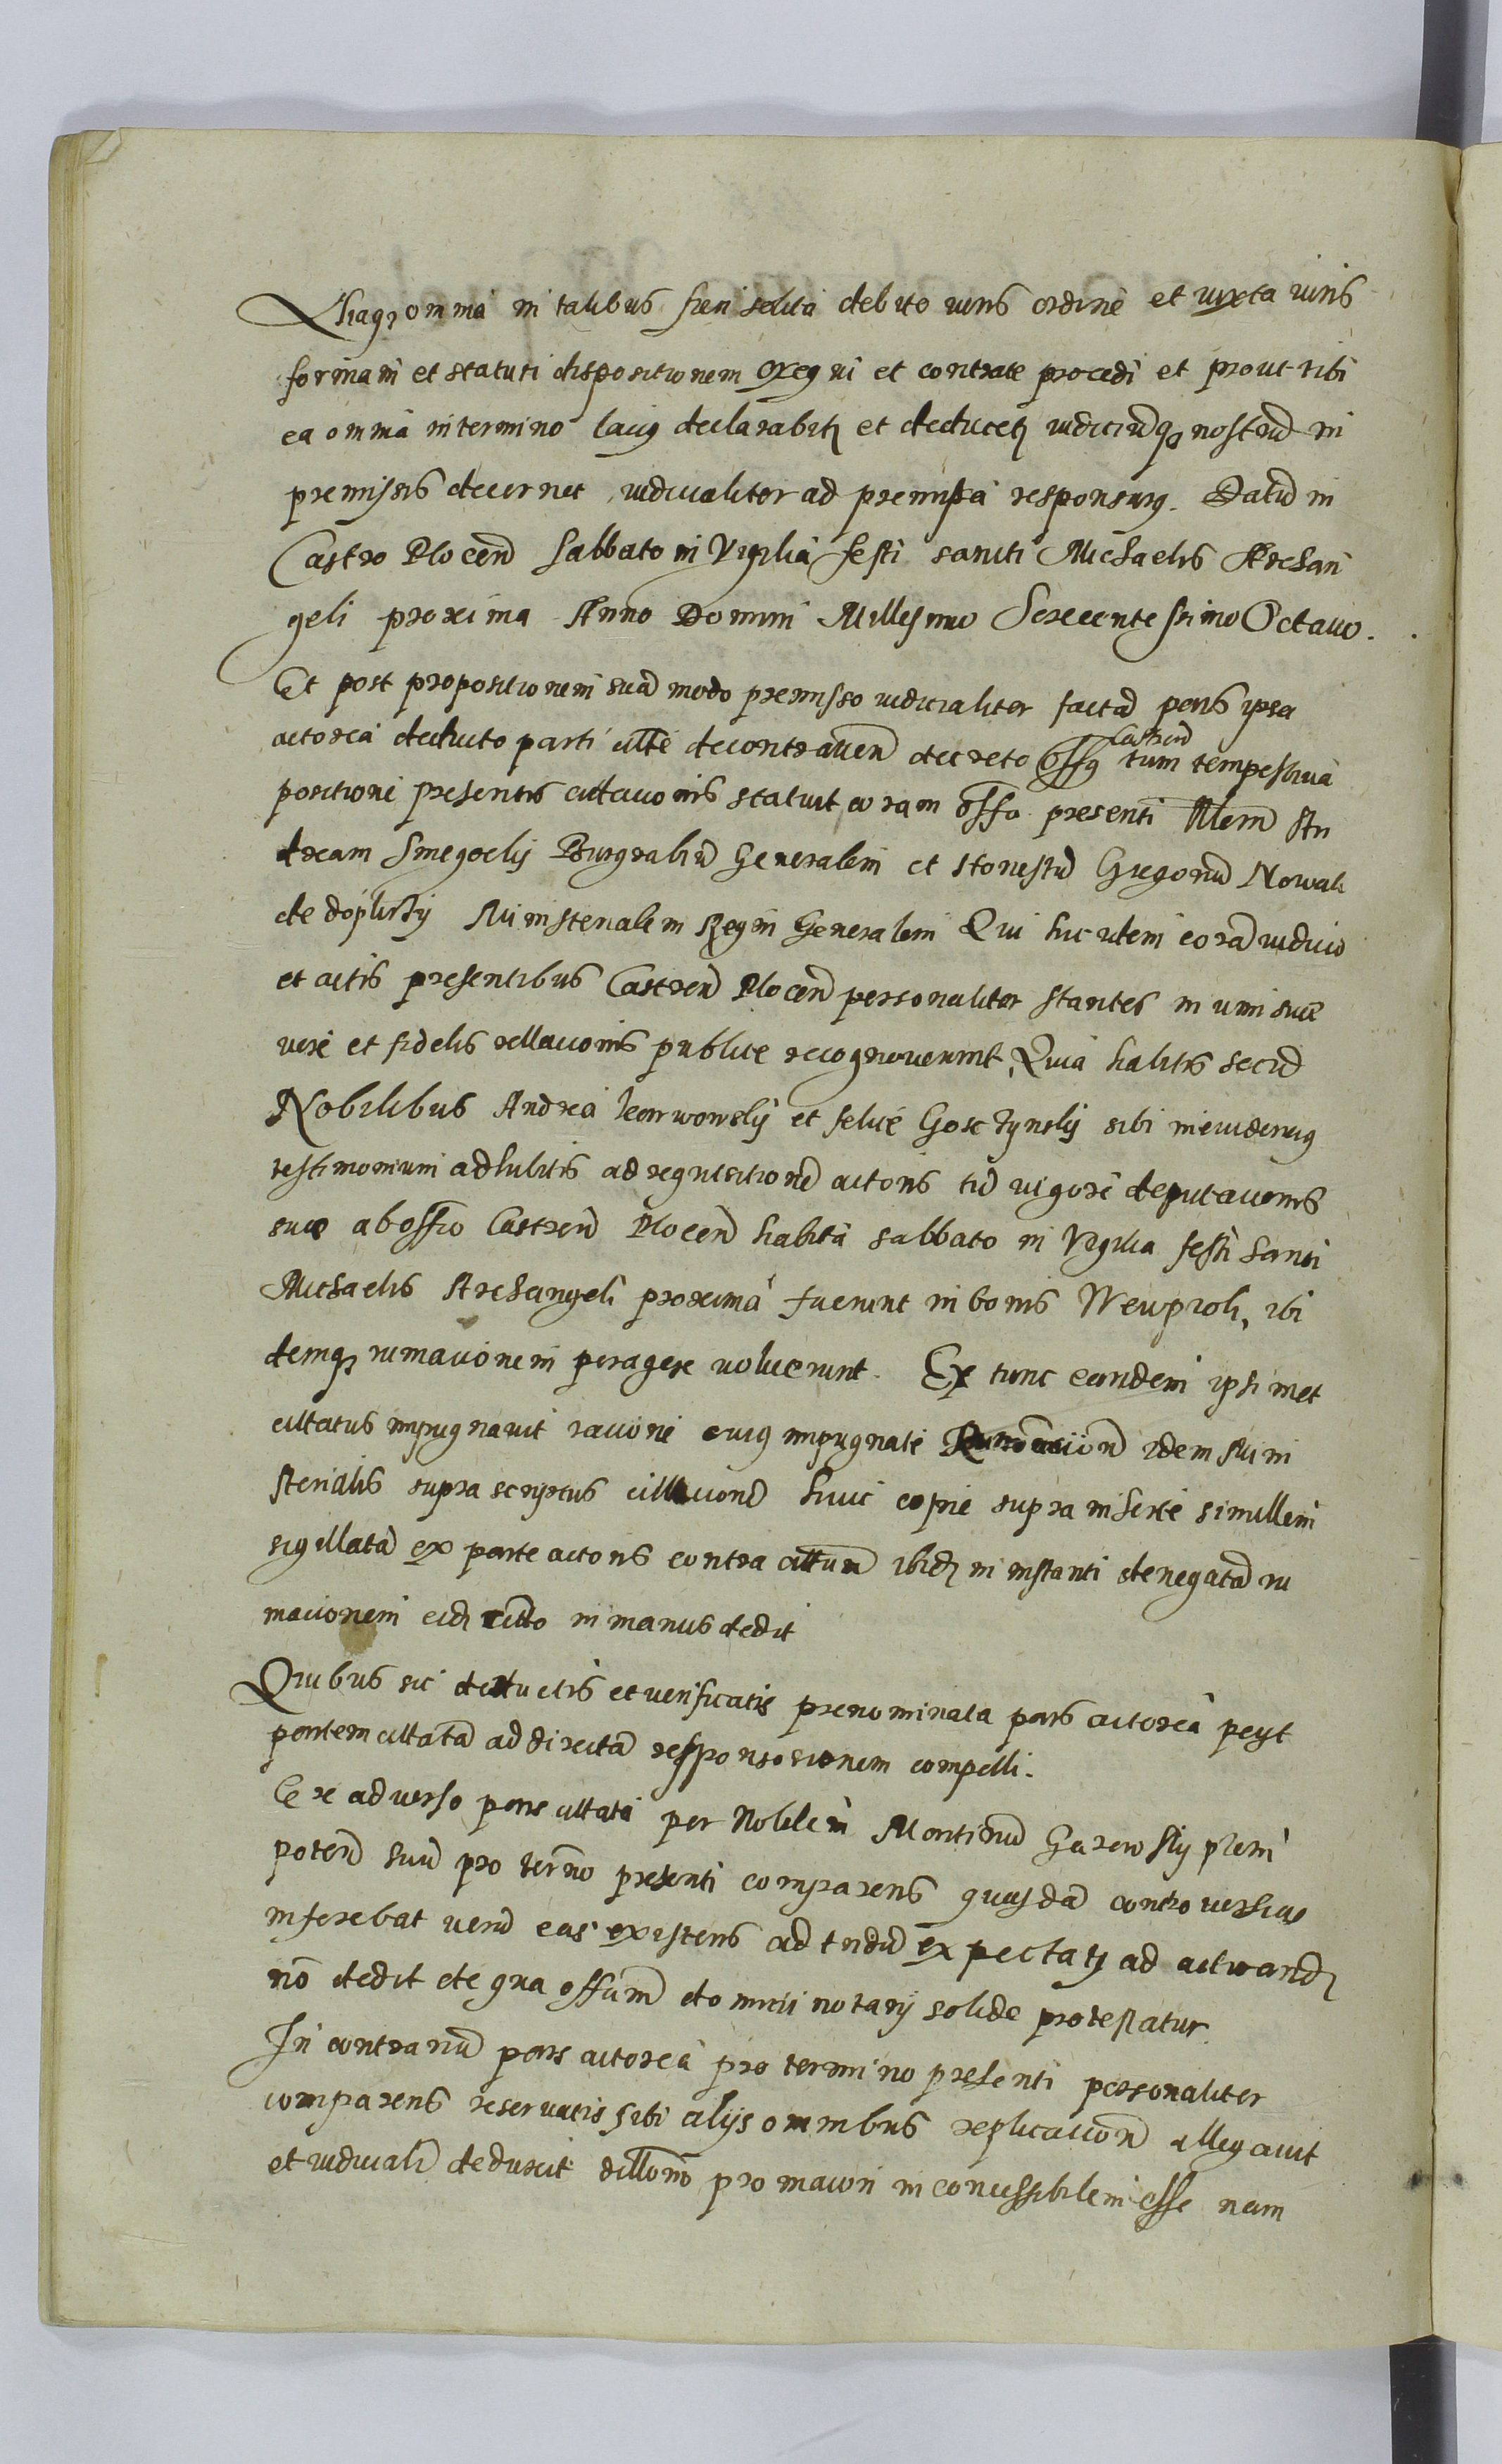 aliaq; omnia in talibus fieri solita debito iuris ordine et iuxta iuris
formam et statuti dispositionem exequi et contra te procedi et prout tibi
ea omnia in termino laciq declarabitz et deducetz iudiciuq; nostrud in
premissis decernet iudicialiter ad premissa responsurq. Datud in
Castro Plocend Sabbato in Vigilia festi sancti Michaelis Archan
geli proxima Anno Domini Millesimo Sexcentessimo Octauo.
Et post propositionem sua modo premisso iudicialiter facta pars ipsa
actorea deducto parti citte de contrauen decreto offq Castren tum tempestiua
positione presentis cittacionis statuit coram offo presenti Nlem An
dream Smegoclij Burgrabiu Generalem et Honestu Gregoriu Nowak
de Ministerialem Regni Generalem Qui hic idem cora iudicio
et actis presentibus Castren Plocen personaliter stantes in vim sue
vere et fidelis rellacionis publice recognouerunt, Quia habitis secu
Nobilibus Andrea et felice GoscZynskij sibi in euidentiq
testimonium adhibitis ad requisitione actoris tu vigore deputacionis
sue ab offio Castren Plocen habita sabbato in Vigilia festi Sancti
Michaelis Archangeli proxima fuerunt in bonis ibi
demq; rumacionem peragere voluerunt. Ex tunc eandem ipsimet
cittatus impugnauit racione cuiq impugnate idem Mini
sterialis supra scriptus cittacione huic copie supra inserte simillem
sigillata ex parte actoris contra cittum ibidz in instanti denegata ru
macionem eidz citto in manus dedit
Quibus sic deductis et verificatis prenominata pars actorea petyt
partem cittata ad directa responsionem compelli.
Ex aduerso pars cittata per Nobilem Martinu plem
poten suu pro termo presenti comparens quasda controuersias
inferebat veru eas existens ad tndu expectatz ad acticandz
no dedit de qua offium domini notarij solide protestatur
In contrariu pars actorea pro termino presenti personaliter
comparens reseruatis sibi alijs omnibus replicacion allegauit
et iudiciali deduxit dillono pro maiori inconcessibilem esse nam